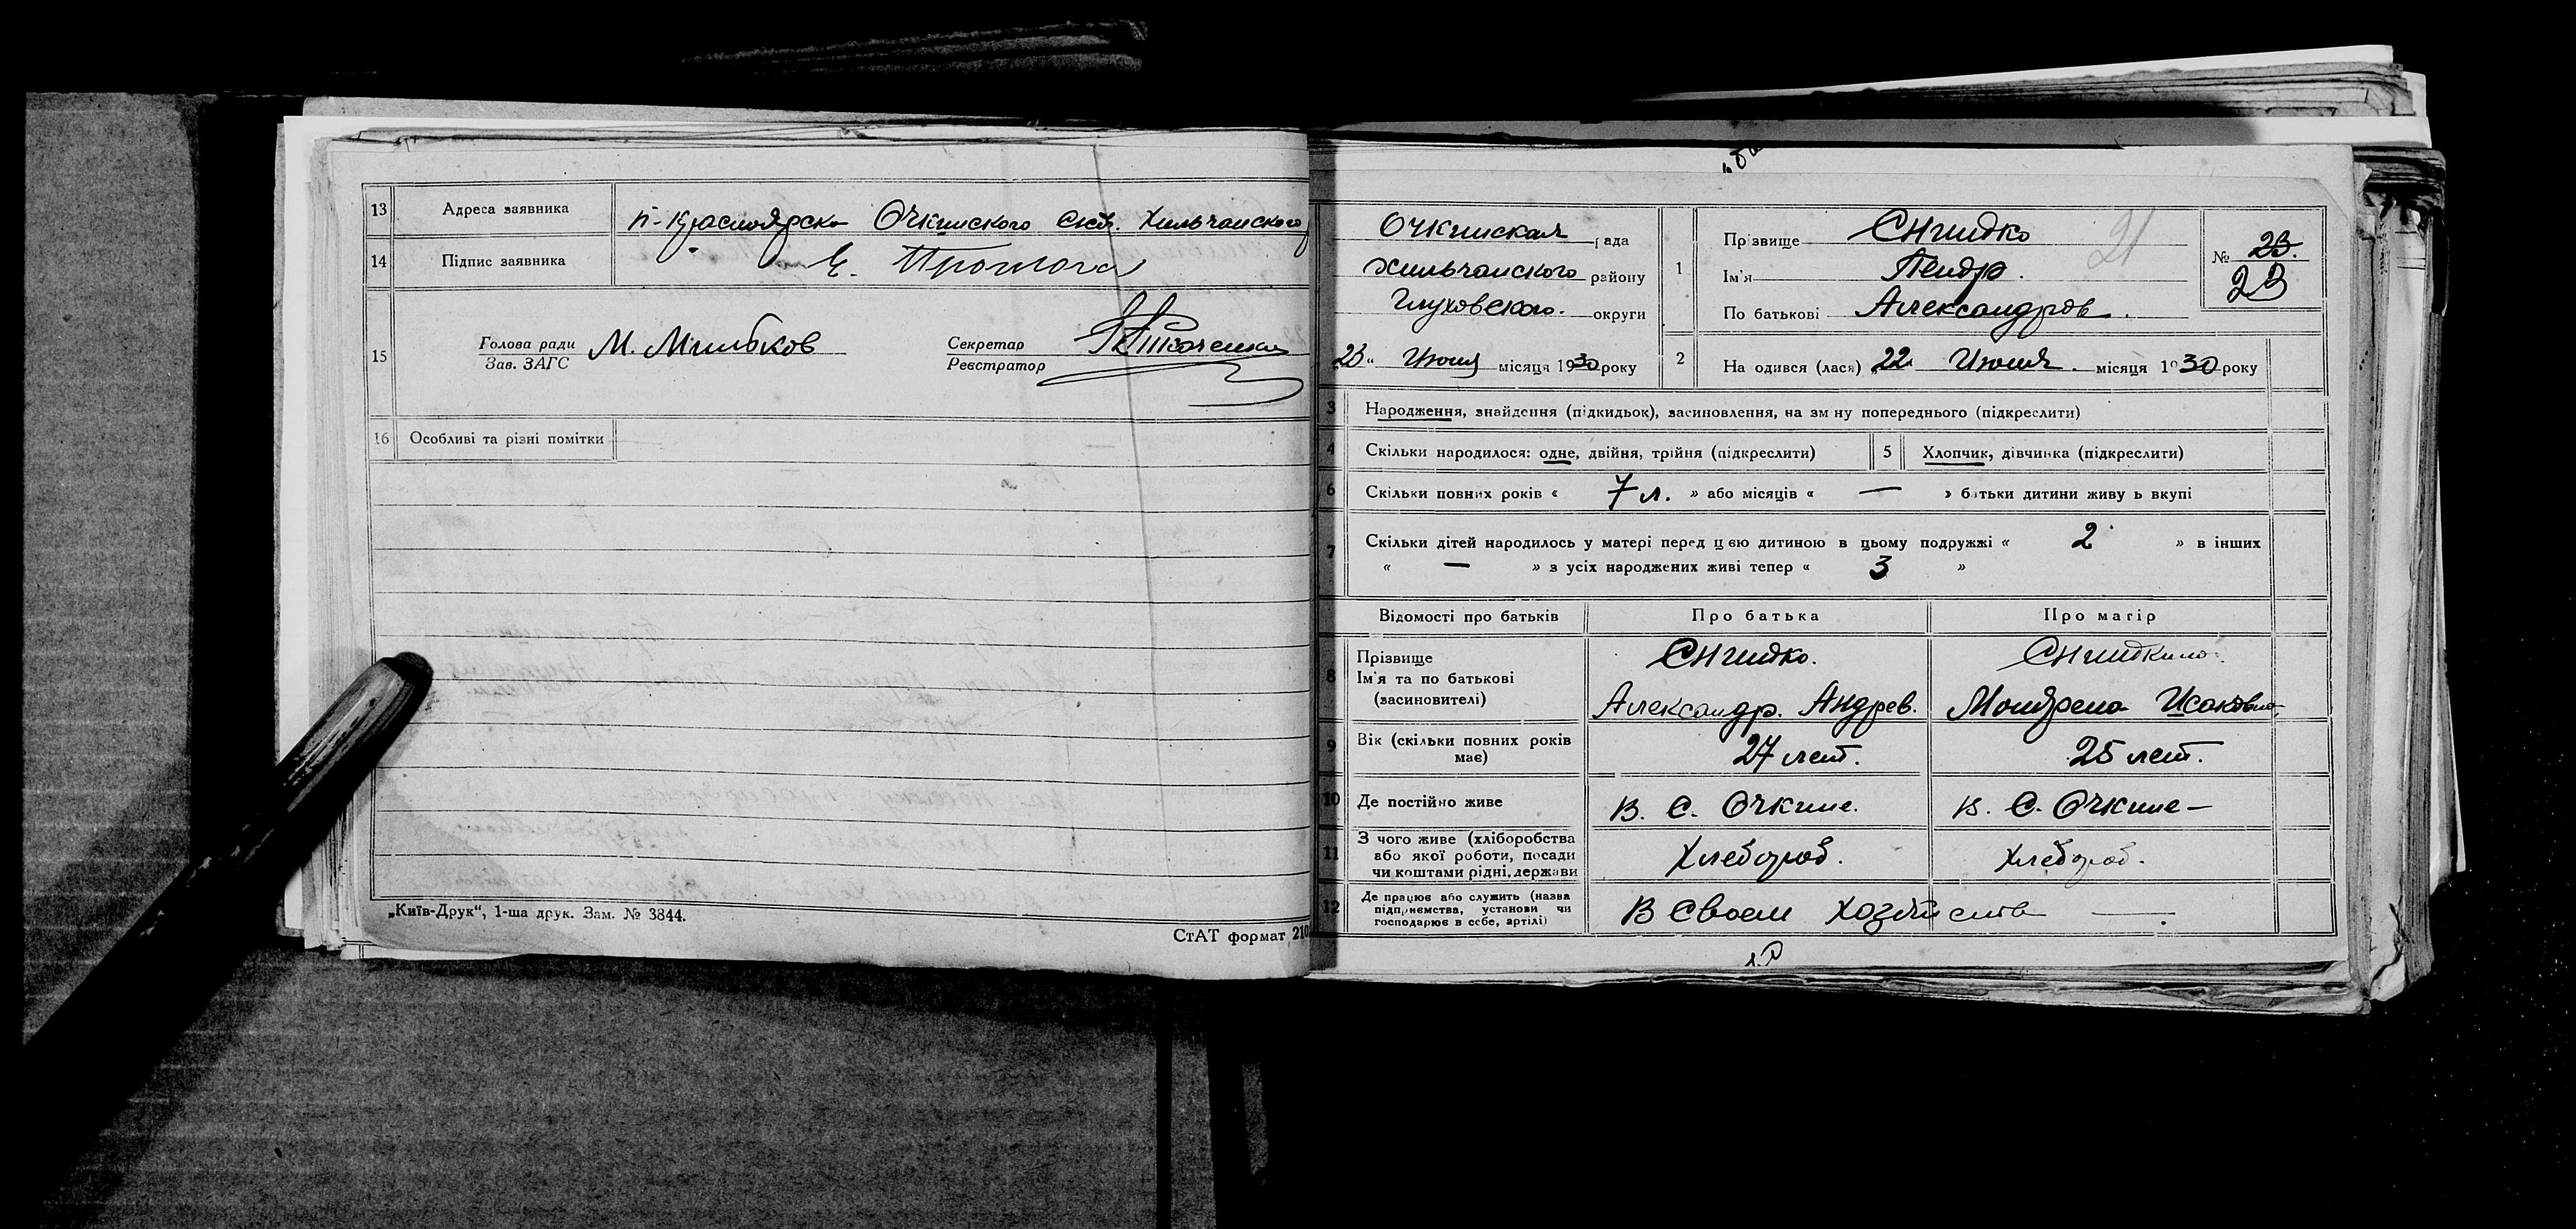 13 Адреса заявника п-Красноярско Очкинского Хильчанского
14 Підпис заявника
15 Голова ради
Зав. ЗАГС М.
Секретар
Реєстратор
16 Особливі та різні помітки
„Київ-Друк“, 1-ша друк. Зам. № 3844.
СтАТ формат 210
Очкинская рада
Хильчанского району
Глуховского. округи
23 " Июня місяця 1930 року
1 Прізвище Снитко
Ім'я Петр.
По батькові Александров.
21
№ 23.
23
2 На одився (лася) „22" Июня. місяця 1930 року
3 Народження, знайдення (підкидьок), засиновлення, на зм ну попереднього (підкреслити)
4 Скільки народилося: одне, двійня, трійня (підкреслити) 5 Хлопчик, дівчинка (підкреслити)
6 Скільки повних років « 7 л. » або місяців « — » батьки дитини живу ь вкупі
7 Скільки дітей народилось у матері перед цею дитиною в цьому подружжі « 2 » в інших
« — » з усіх народжених живі тепер « 3 »
Відомості про батьків Про батька Про матір
8 Прізвище
Ім'я та по батькові
(засиновителі)
Снитко.
Александр. Андрев.
Сниткина.
Мотрена Исаковна
9 Вік (скільки повних років
має) 27 лет. 25 лет.
10 Де постійно живе В. С. Очкине. В. С. Очкине —
11 З чого живе (хліборобства
або якої роботи, посади
чи коштами рідні, держави Хлебороб. Хлебороб.
12 Де працює або служить (назва
підприємства, установи чи
господарює в себе, артілі) В своем хозяйстве —